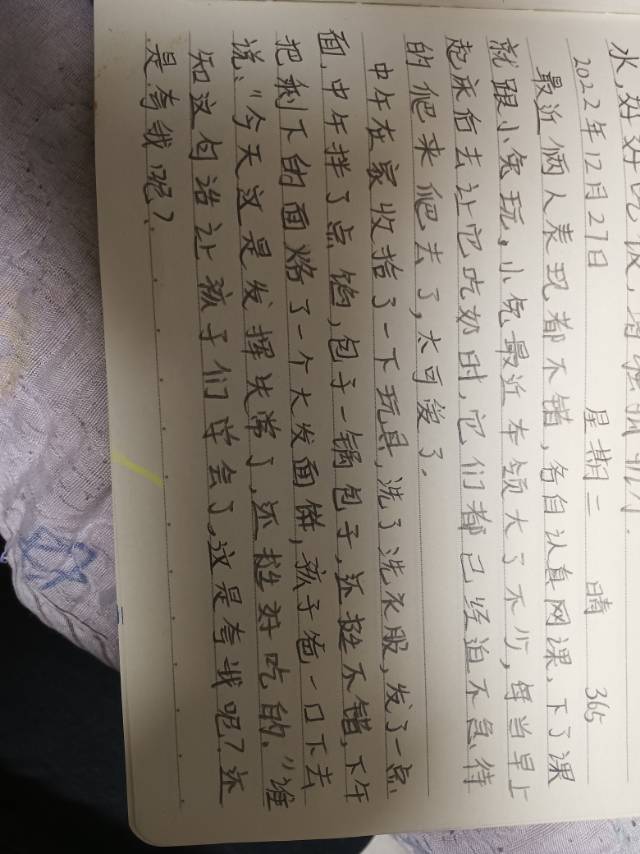 水,好好吃饭,增强抵抗力.
2022年12月27日 星期二 晴 365
最近俩人表现都不错,各自认真网课,下了课
就跟小兔玩,小兔最近本领大了不少,每当早上
起床后去让它吃奶时,它们都已经迫不急待
的爬来爬去了,太可爱了.
中午在家收拾了一下玩具,洗了洗衣服,发了一点
面,中午拌了点馅,包子一锅包子,还挺不错,下午
把剩下的面烙了一个大发面饼,孩子爸一口下去
说:“今天这是发挥失常了,还挺好吃的.”谁
知这句话让孩子们学会了,这是夸我吧?还
是夸我吧?